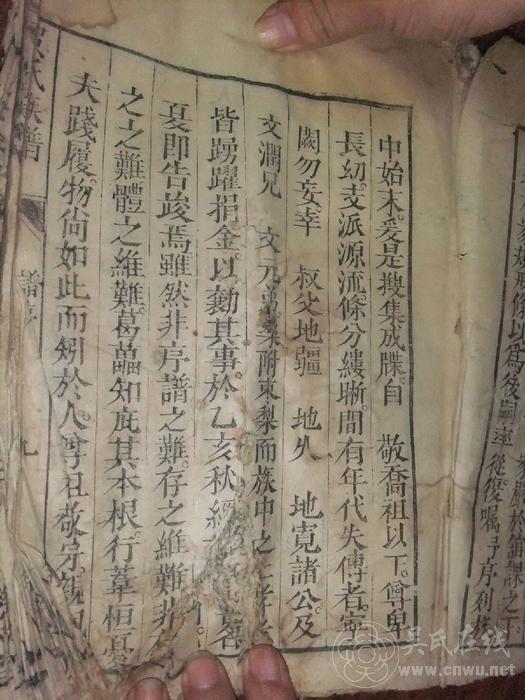 為後嗣率
從復囑予序列於
中始末爰是搜集成牒自 敬喬祖以下尊卑
長幼支派源流條分縷晰間有年代失傳者寧
闕勿妄幸 叔父地疆 地久 地寬諸公及
文澗兄 文元弟棗附東梨而族中之
皆踴躍捐金以勷其事於乙亥秋經
夏即告竣焉雖然非序譜之難存之維難非
之之難體之維難葛藟知庇其本根行葦桓憂
夫踐履物尚如此而矧於人尊祖敬宗
氏族譜
譜序
九
吴氏在线
www.cnwu.net